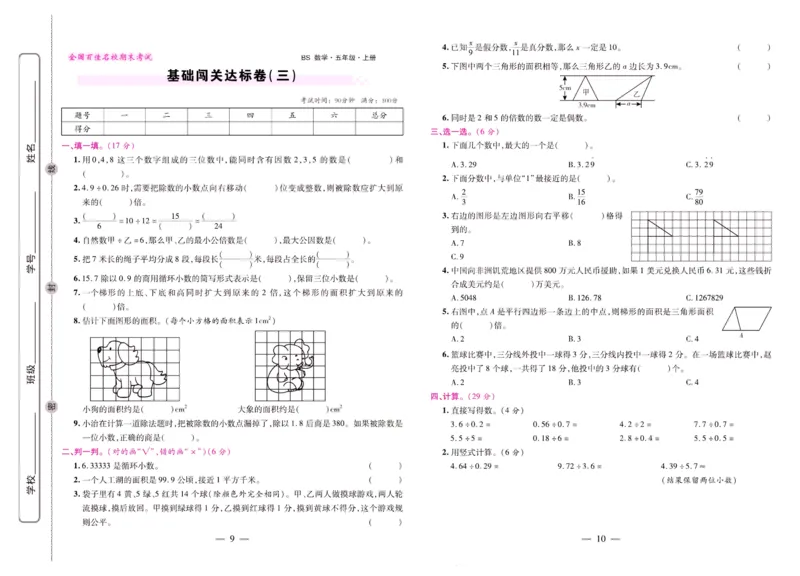 全国百佳名校期末考试
BS 数学·五年级·上册
基础闯关达标卷(三)
考试时间:90分钟 满分:100分
题号 一 二 三 四 五 六 总分
得分
一、填一填。(17 分)
1. 用 0,4,8 这三个数字组成的三位数中,能同时含有因数 2,3,5 的数是( )和
( )。
2. 4.9÷0.26 时,需要把除数的小数点向右移动( )位变成整数,则被除数应扩大到原
来的( )倍。
3. ( )/6 =10÷12= 15/( ) = ( )/24
4. 自然数甲÷乙=6,那么甲、乙的最小公倍数是( ),最大公因数是( )。
5. 把 7 米长的绳子平均分成 8 段,每段长( )/( )米,每段占全长的( )/( )。
6. 15.7 除以 0.9 的商用循环小数的简写形式表示是( ),保留三位小数是( )。
7. 一个梯形的上底、下底和高同时扩大到原来的 2 倍,这个梯形的面积扩大到原来的
( )倍。
8. 估计下面图形的面积。(每个小方格的面积表示 1cm²)
小狗的面积约是( )cm² 大象的面积约是( )cm²
9. 小冶在计算一道除法题时,把被除数的小数点漏掉了,除以 1.8 后商是 380。如果被除数是
一位小数,正确的商是( )。
二、判一判。(对的画“√”,错的画“×”)(6 分)
1. 6.33333 是循环小数。 ( )
2. 一个人工湖的面积是 99.9 公顷,接近 1 平方千米。 ( )
3. 袋子里有 4 黄,5 绿,5 红共 14 个球(除颜色外完全相同)。甲、乙两人做摸球游戏,两人轮
流摸球,摸后放回。甲摸到绿球得 1 分,乙摸到红球得 1 分,摸到黄球不得分,这个游戏规
则公平。 ( )
— 9 —
4. 已知 x/9 是假分数, x/11 是真分数,那么 x 一定是 10。 ( )
5. 下图中两个三角形的面积相等,那么三角形乙的 a 边长为 3.9cm。 ( )
5cm 甲 乙
3.9cm a
6. 同时是 2 和 5 的倍数的数一定是偶数。 ( )
三、选一选。(6 分)
1. 下面几个数中,最大的一个是( )。
A. 3.29 B. 3.29̇ C. 3.2̇9̇
2. 下面分数中,与单位“1”最接近的是( )。
A. 2/3 B. 15/16 C. 79/80
3. 右边的图形是左边图形向右平移( )格得
到的。
A. 7 B. 8
C. 9
4. 中国向非洲饥荒地区提供 800 万元人民币援助,如果 1 美元兑换人民币 6.31 元,这些钱折
合成美元约是( )万美元。
A. 5048 B. 126.78 C. 1267829
5. 右图中,点 A 是平行四边形一条边上的中点,则梯形的面积是三角形面积
的( )倍。
A
A. 2 B. 3 C. 4
6. 篮球比赛中,三分线外投中一球得 3 分,三分线内投中一球得 2 分。在一场篮球比赛中,赵
亮投中了 8 个球,一共得了 18 分,他投中的 3 分球有( )个。
A. 2 B. 3 C. 4
四、计算。(29 分)
1. 直接写得数。(4 分)
3.6÷0.2= 0.56÷0.7= 4.2÷2= 7.7÷0.7=
5.5÷5= 0.18÷6= 2.8÷0.4= 5.5÷0.5=
2. 用竖式计算。(6 分)
4.64÷0.29= 9.72÷3.6= 4.39÷5.7≈
(结果保留两位小数)
— 10 —
姓名
线
学号
封
班级
密
学校